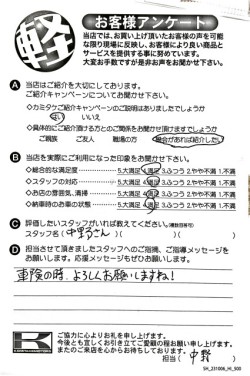 軽
お客様アンケート
当店では、お買い上げ頂いたお客様の声を可能
な限り現場に反映し、お客様により良い商品と
サービスを提供する事に努めています。
大変お手数ですが是非お声をお聞かせ下さい。
A 当店はご紹介を大切にしております。
ご紹介キャンペーンについてお聞かせ下さい。
◇カミタケご紹介キャンペーンのご説明はありましたでしょうか
はい いいえ
◇具体的にご紹介頂ける方とのご関係をお聞かせ頂けますでしょうか
ご親族 ご友人 職場の方 機会があれば紹介したい
B 当店を実際にご利用になった印象をお聞かせ下さい。
◇総合的な満足度 5.大満足 4.満足 3.ふつう 2.やや不満 1.不満
◇スタッフの対応 5.大満足 4.満足 3.ふつう 2.やや不満 1.不満
◇お店の雰囲気、清掃 5.大満足 4.満足 3.ふつう 2.やや不満 1.不満
◇納車時のお車の状態 5.大満足 4.満足 3.ふつう 2.やや不満 1.不満
C 評価したいスタッフがいれば教えてください。(複数回答可)
スタッフ名( 中野さん )( )
D 担当させて頂きましたスタッフへのご指摘、ご指導メッセージを
お願いします。応援メッセージもぜひお聞かせ下さい。
車険の時、よろしくお願いしますね!
K
ご協力に心よりお礼を申し上げます。
今後とも宜しくお引き立てご愛顧の程お願い申し上げます。
またのご来店を心からお待ちしております。
担当( 中野 )
SH_231006_HI_500